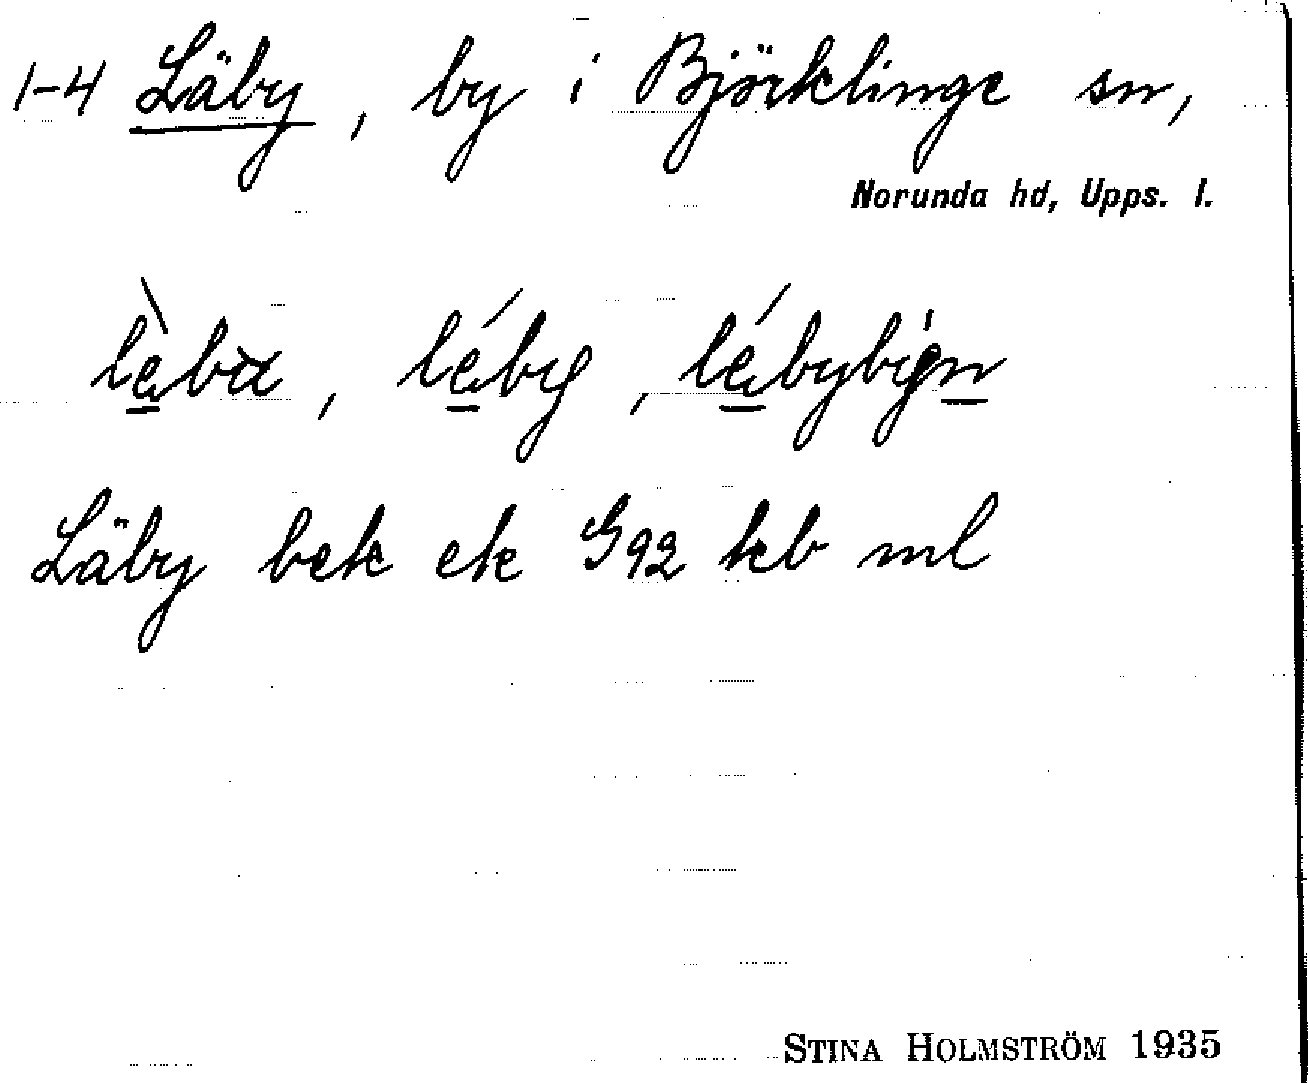 1-4 Läby, by i Björklinge sn,
Norunda hd, Upps. l.
Läby bek ek G92 kb ml
STINA HOLMSTRÖM 1935